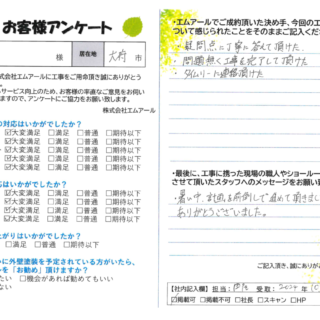 お客様アンケート
様 居在地 大府 市
株式会社エムアールに工事をご用命頂き誠にありがとう
サービス向上のため、お客様の率直なご意見をお伺い
ますので、アンケートにご協力をお願い致します。
株式会社エムアール
の対応はいかがでしたか？
☑大変満足 □満足 □普通 □期待以下
☑大変満足 □満足 □普通 □期待以下
☑大変満足 □満足 □普通 □期待以下
☑大変満足 □満足 □普通 □期待以下
応はいかがでしたか？
☑大変満足 □満足 □普通 □期待以下
☑大変満足 □満足 □普通 □期待以下
☑大変満足 □満足 □普通 □期待以下
☑大変満足 □満足 □普通 □期待以下
がりはいかがでしたか？
大変満足 □満足 □普通 □期待以下
いに外壁塗装を予定されている方がいたら、
を「お勧め」頂けますか？
たい □機会があれば勧めてもいい
ない
・エムアールでご成約頂いた決め手、今回の工
ついて感じられたことをそのままご記入くだ
・疑問点に丁寧に答えて頂けた
・問題無く工事を完了して頂けた
・タイムリーに連絡頂けた
・最後に、工事に携った現場の職人やショールー
させて頂いたスタッフへのメッセージをお願い
・暑い中、計画通り前倒しで進めて頂きまし
ありがとうございました。
ご記入頂き、誠にあり
【社内記入欄】担当： 受取：2024
☑掲載可 □掲載不可 □社長 □スキャン □HP